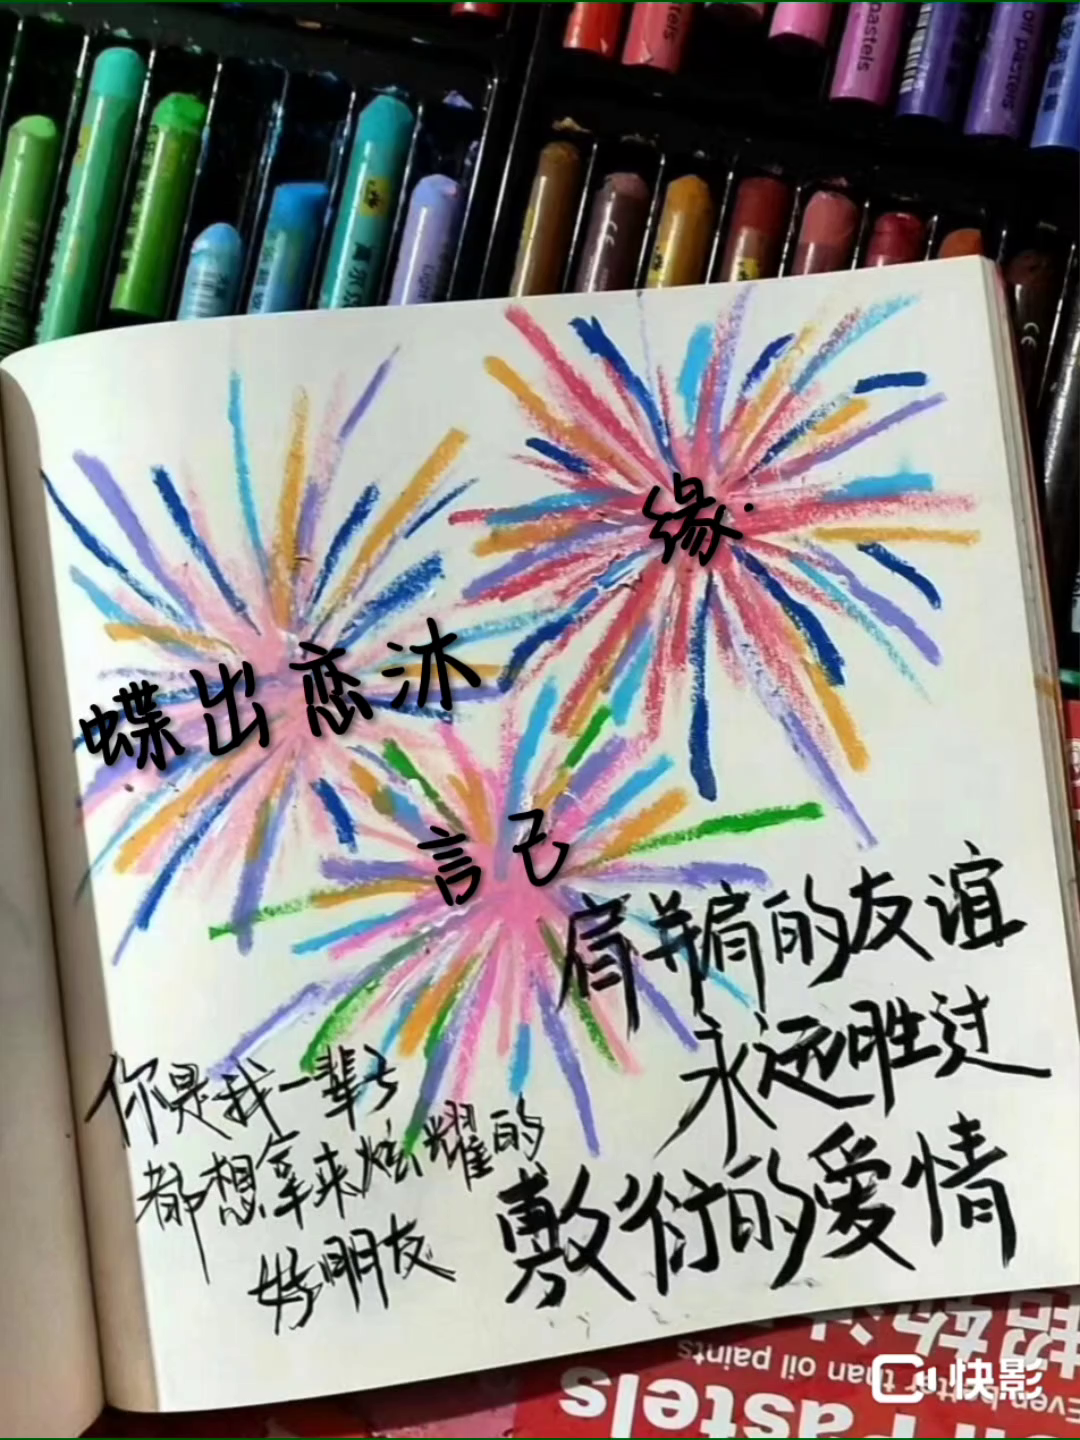 pastels
oil pastels
缘.
蝶出恋沐
言己
肩并肩的友谊
永远胜过
敷衍的爱情
你是我一辈子
都想拿来炫耀的
好朋友
than oil paints
astels
快影